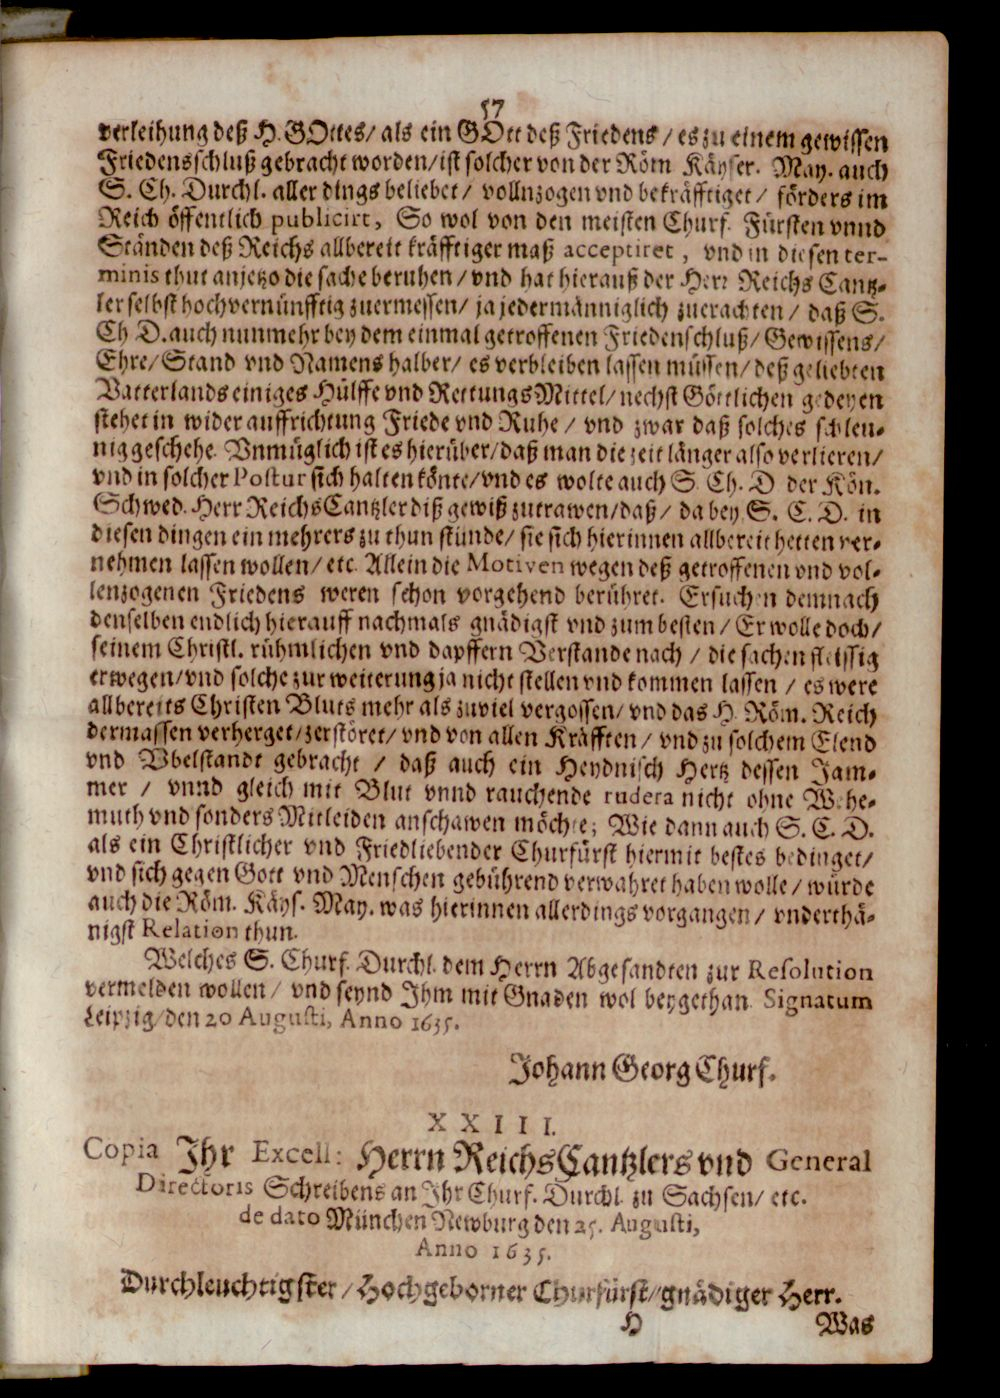 57
verleihung deß H. GOttes/ als ein GOtt deß Friedens / es zu einem gewissen
Friedensschluß gebracht worden/ist solcher von der Röm Käyser. May. auch
S. Ch. Durchl. aller dings beliebet / vollnzogen vnd bekräfftiget / förders im
Reich öffentlich publicirt, So wol von den meisten Churf. Fürsten vnnd
Ständen deß Reichs allbereit kräfftiger maß acceptiret, vnd in diesen ter-
minis thut anjetzo die sache beruhen / vnd hat hierauß der Herr Reichs Cantz-
ler selbst hochvernünfftig zuermessen/ ja jedermänniglich zuerachten / daß S.
Ch D. auch nunmehr bey dem einmal getroffenen Friedenschluß/ Gewissens/
Ehre/ Stand vnd Namens halber/ es verbleiben lassen müssen/ deß geliebten
Vatterlands einiges Hülffe vnd RettungsMittel/ nechst Göttlichen gedeyen
stehet in wider auffrichtung Friede vnd Ruhe / vnd zwar daß solches schleu-
nig geschehe. Vnmüglich ist es hierüber/ daß man die zeit länger also verlieren/
vnd in solcher Postur sich halten könte/ vnd es wolte auch S. Ch. D der Kön.
Schwed. Herr ReichsCantzler diß gewiß zutrawen/daß/ da bey S. C. D. in
diesen dingen ein mehrers zu thun stünde/ sie sich hierinnen allbereit hetten ver-
nehmen lassen wollen/ etc. Allein die Motiven wegen deß getroffenen vnd vol-
lenzogenen Friedens weren schon vorgehend berühret. Ersuchen demnach
denselben endlich hierauff nachmals gnädigst vnd zum besten / Er wolle doch/
seinem Christl. rühmlichen vnd dapffern Verstande nach / die sachen fleissig
erwegen/vnd solche zur weiterung ja nicht stellen vnd kommen lassen / es were
allbereits Christen Bluts mehr als zuviel vergossen/ vnd das H. Röm. Reich
dermassen verherget/zerstöret/ vnd von allen Kräfften / vnd zu solchem Elend
vnd Vbelstandt gebracht / daß auch ein Heydnisch Hertz dessen Jam-
mer / vnnd gleich mit Blut vnnd rauchende rudera nicht ohne Wehe-
muth vnd sonders Mitleiden anschawen möchte; Wie dann auch S. C. D.
als ein Christlicher vnd Friedliebender Churfürst hiermit bestes bedinget/
vnd sich gegen Gott vnd Menschen gebührend verwahret haben wolle / würde
auch die Röm. Käys. May. was hierinnen allerdings vorgangen / vnderthä-
nigst Relation thun.
Welches S. Churf. Durchl. dem Herrn Abgesandten zur Resolution
vermelden wollen / vnd seynd Ihm mit Gnaden wol beygethan. Signatum
Leipzig/den 20 Augusti, Anno 1635.
Johann Georg Churf.
XXIII.
Copia Ihr Excell: Herrn ReichsCantzlers vnd General
Directoris Schreibens an Ihr Churf. Durchl. zu Sachsen/ etc.
de dato München Newburg den 25. Augusti,
Anno 1635.
Durchleuchtigster / Hochgeborner Churfürst/gnädiger Herr.
H Was